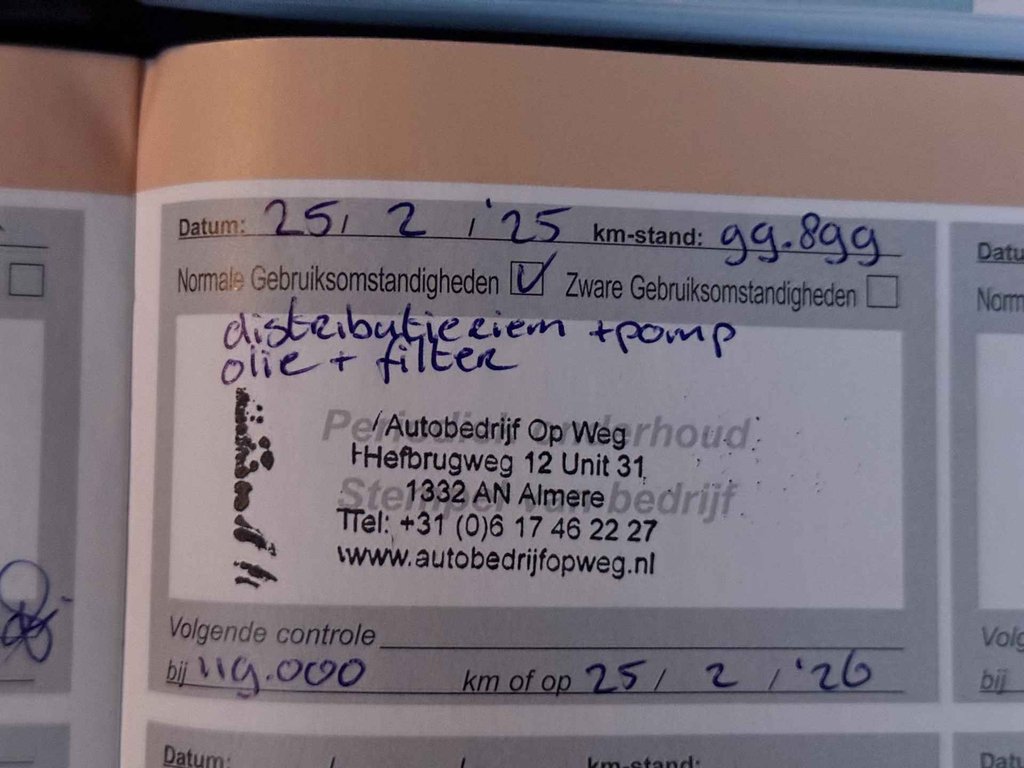 Datum: 25/ 2 / '25 km-stand: 99.899
Normale Gebruiksomstandigheden Zware Gebruiksomstandigheden
distributieriem + pomp
olie + filter
Periodiek onderhoud
Stempel van bedrijf
Autobedrijf Op Weg
Hefbrugweg 12 Unit 31
1332 AN Almere
Tel: +31 (0)6 17 46 22 27
www.autobedrijfopweg.nl
Volgende controle
bij 119.000 km of op 25/ 2 / '26
Datum: / / km-stand:
Datu
Norm
Volg
bij
Datu